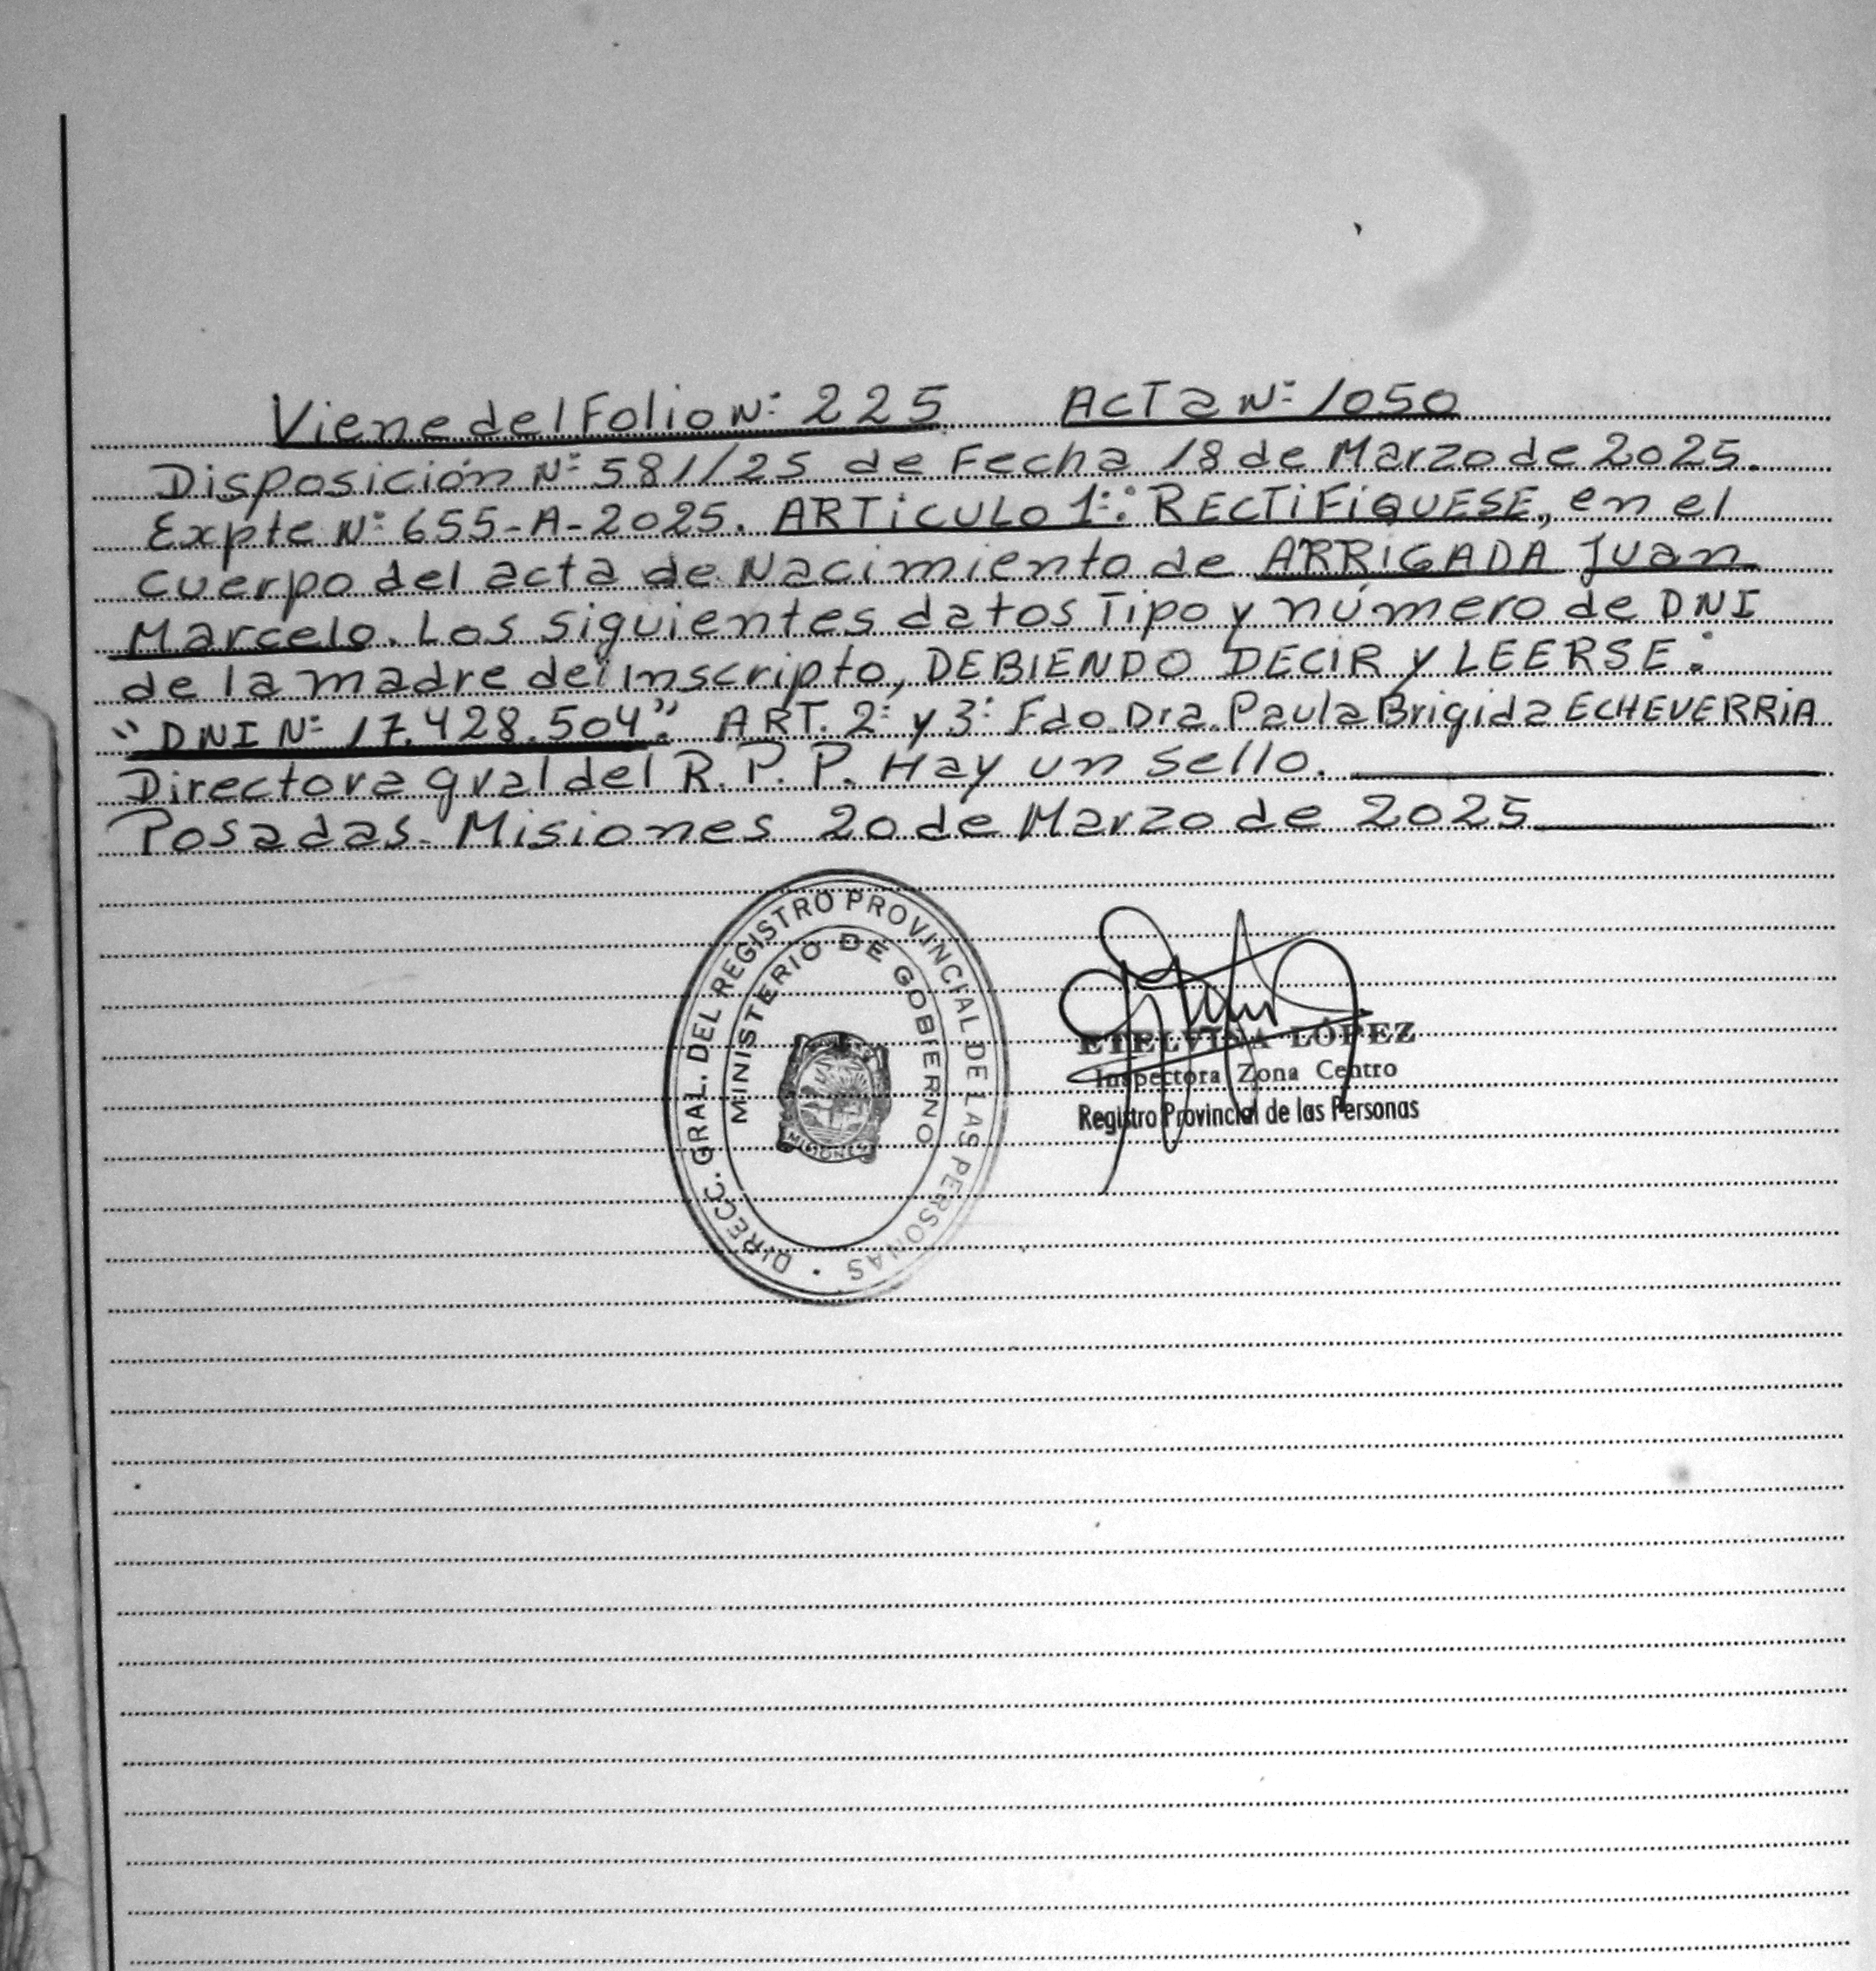 Viene del Folio Nº 225 ACTa Nº 1050
Disposición Nº 581/25 de Fecha 18 de Marzo de 2025.
Expte Nº 655-A-2025. ARTiCULO 1º: RECTiFiQUESE, en el
cuerpo del acta de Nacimiento de ARRIGADA Juan
Marcelo. Los siguientes datos Tipo y número de DNI
de la madre del inscripto, DEBIENDO DECIR y LEERSE:
"DNI Nº 17.428.504". ART. 2º y 3º Fdo Dra. Paula Brigida ECHEVERRiA
Directora gral del R. P. P. Hay un sello.
Posadas- Misiones 20 de Marzo de 2025
DIRECC. GRAL. DEL REGISTRO PROVINCIAL DE LAS PERSONAS
MINISTERIO DE GOBIERNO
MISIONES
ETELVINA LÓPEZ
Inspectora Zona Centro
Registro Provincial de las Personas